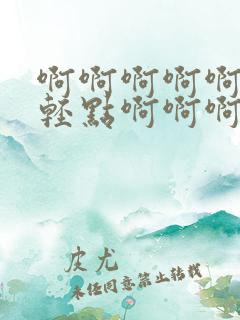 啊啊啊啊啊
轻點啊啊啊
皮尤
未经同意禁止转载